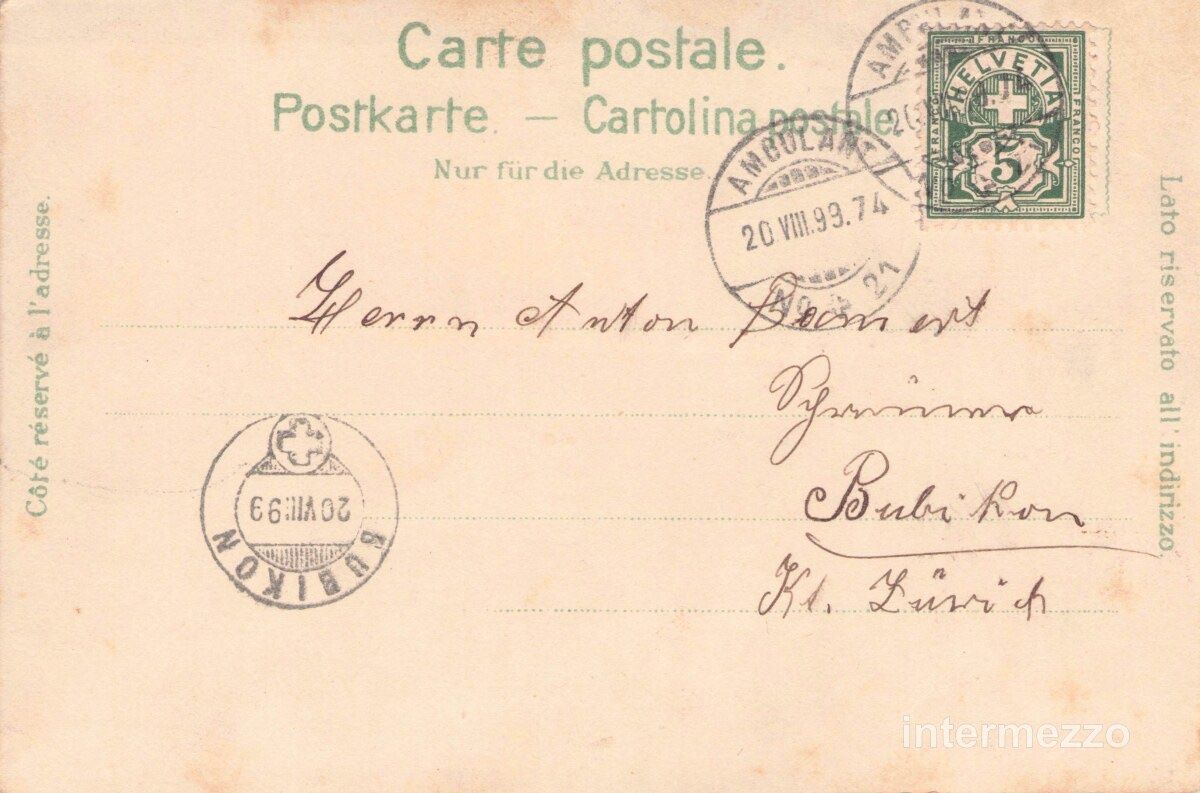 Carte postale.
Postkarte. — Cartolina postale.
Nur für die Adresse.
AMBULANT
20 VIII.99.74
No 21
FRANCO
HELVETIA
FRANCO
FRANCO
5
Côté réservé à l'adresse.
Lato riservato all' indirizzo.
Herrn Anton
Schreiner
Bubikon
Kt. Zürich
20 VIII.99
BUBIKON
intermezzo